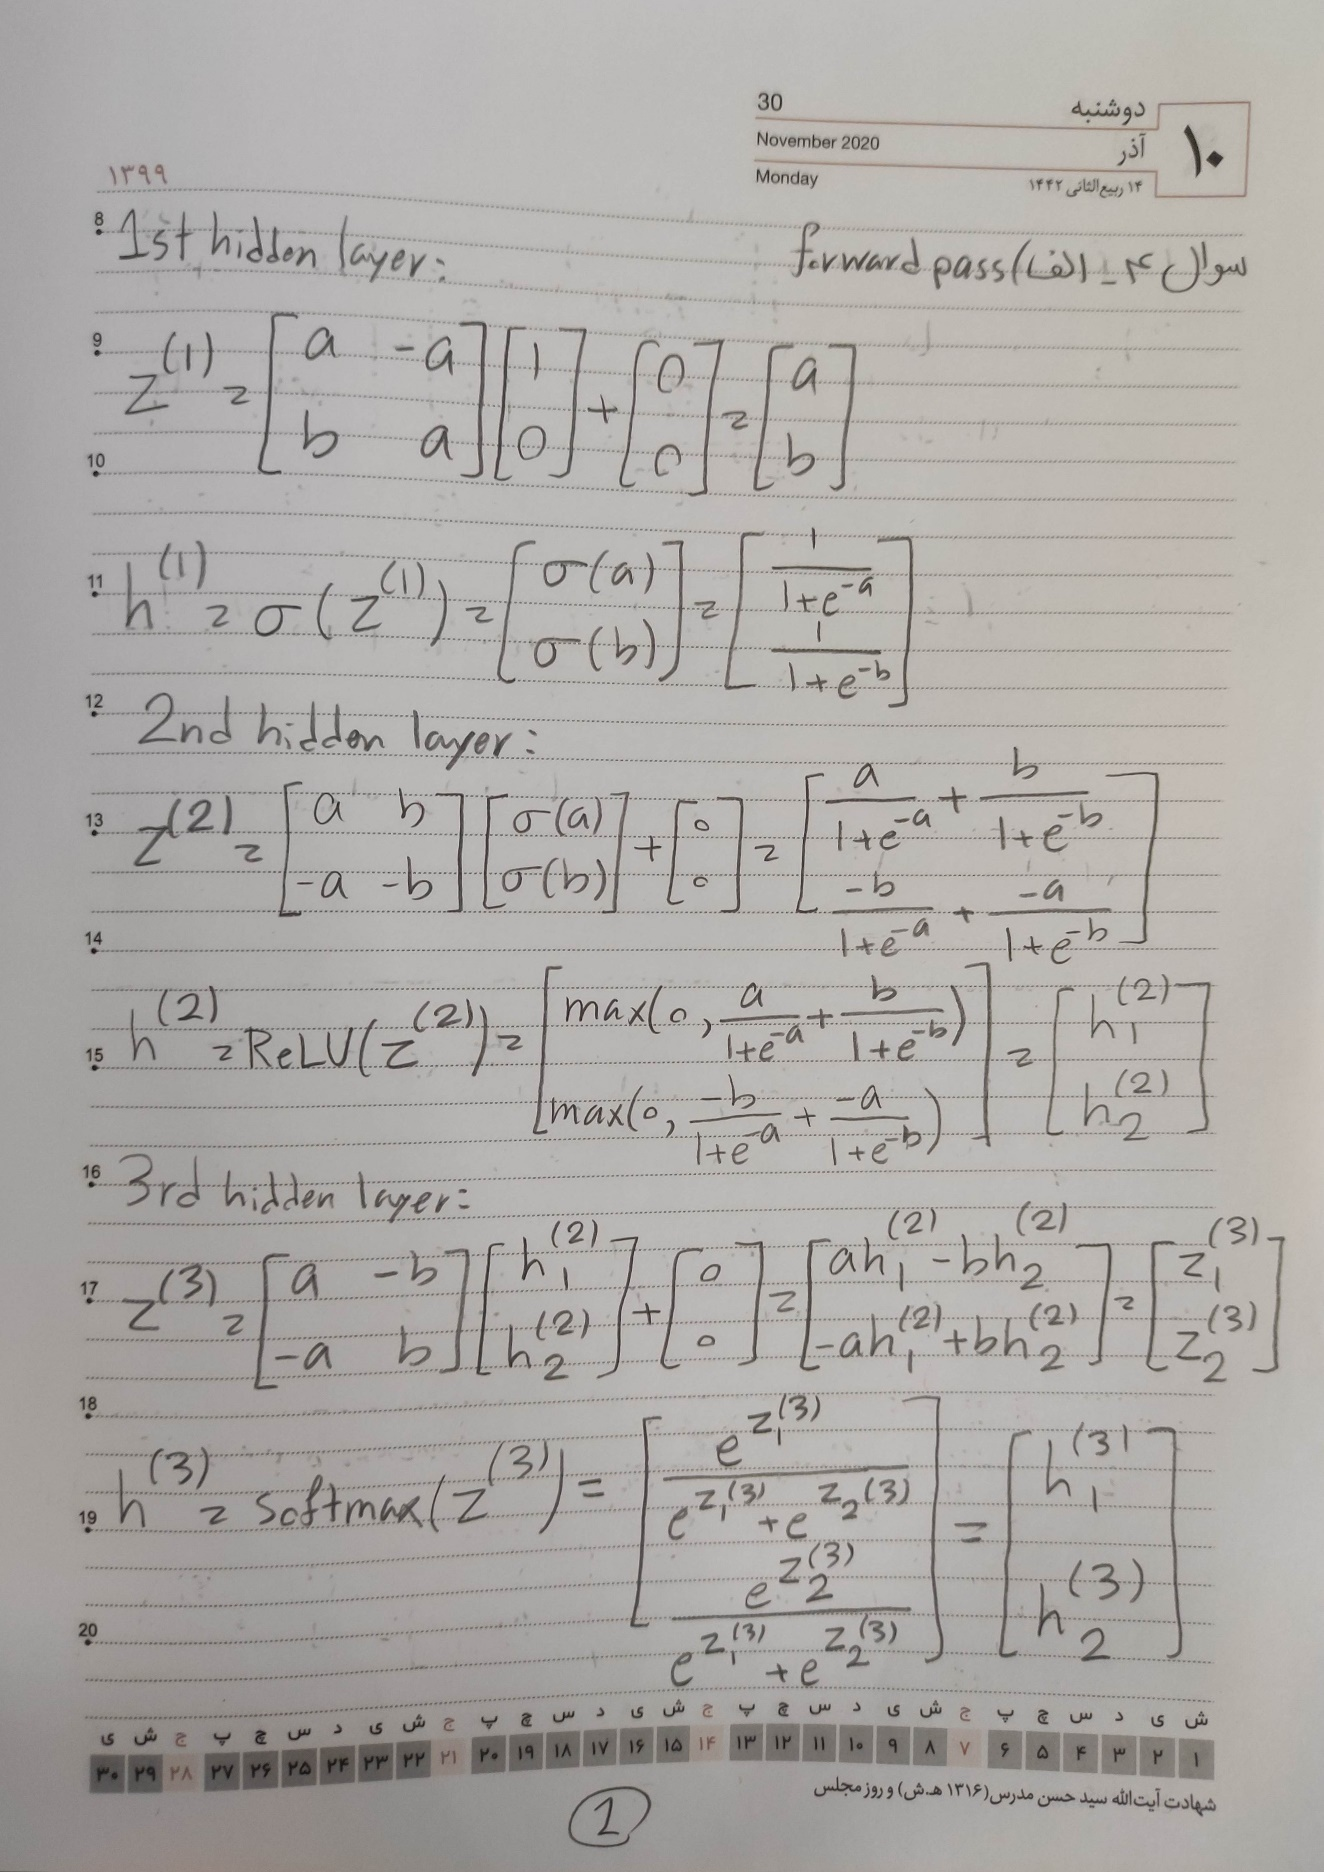 30
دوشنبه
November 2020
آذر
۱۰
Monday
۱۴ ربیع‌الثانی ۱۴۴۲
۱۳۹۹
8
1st hidden layer:
سوال ۴ - الف) forward pass
9
z^(1) = [a -a; b a] [1; 0] + [0; 0] = [a; b]
10
11
h^(1) = σ(z^(1)) = [σ(a); σ(b)] = [1/(1+e^-a); 1/(1+e^-b)]
12
2nd hidden layer:
13
z^(2) = [a b; -a -b] [σ(a); σ(b)] + [0; 0] = [a/(1+e^-a) + b/(1+e^-b); -b/(1+e^-a) + -a/(1+e^-b)]
14
15
h^(2) = ReLU(z^(2)) = [max(0, a/(1+e^-a) + b/(1+e^-b)); max(0, -b/(1+e^-a) + -a/(1+e^-b))] = [h_1^(2); h_2^(2)]
16
3rd hidden layer:
17
z^(3) = [a -b; -a b] [h_1^(2); h_2^(2)] + [0; 0] = [ah_1^(2) - bh_2^(2); -ah_1^(2) + bh_2^(2)] = [z_1^(3); z_2^(3)]
18
19
h^(3) = softmax(z^(3)) = [e^z_1^(3) / (e^z_1^(3) + e^z_2^(3)); e^z_2^(3) / (e^z_1^(3) + e^z_2^(3))] = [h_1^(3); h_2^(3)]
20
ش ی د س چ پ ج ش ی د س چ پ ج ش ی د س چ پ ج ش ی د س چ پ ج ش ی
۱ ۲ ۳ ۴ ۵ ۶ ۷ ۸ ۹ ۱۰ ۱۱ ۱۲ ۱۳ ۱۴ ۱۵ ۱۶ ۱۷ ۱۸ ۱۹ ۲۰ ۲۱ ۲۲ ۲۳ ۲۴ ۲۵ ۲۶ ۲۷ ۲۸ ۲۹ ۳۰
شهادت آیت‌الله سید حسن مدرس (۱۳۱۶ ه‍.ش) و روز مجلس
1